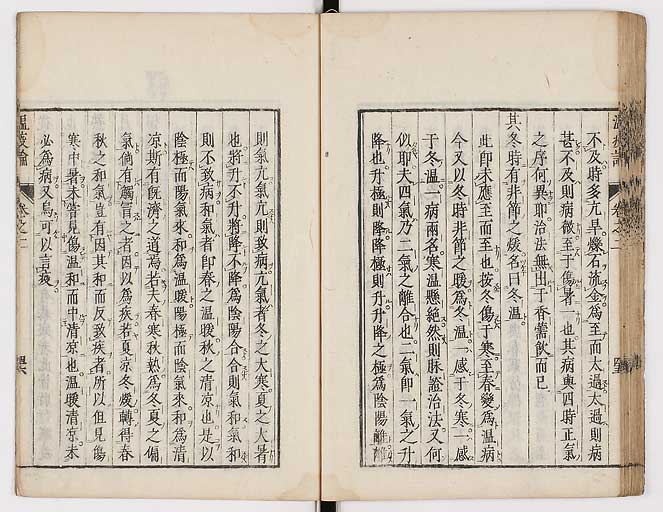 不及時多亢旱爍石流金爲至而太過太過則病
甚不及則病微至于傷暑一也其病與四時正氣
之序何異耶治法無出于香薷飲而已
其冬時有非節之煖名曰冬温
此即未應至而至也按冬傷于寒至春變爲温病
今又以冬時非節之暖爲冬温一感于冬寒一感
于冬温一病兩名寒温懸絶然則脉證治法又何
似耶夫四氣乃二氣之離合也二氣即一氣之升
降也升極則降降極則升升降之極爲陰陽離離
則氣亢氣亢則致病亢氣者冬之大寒夏之大暑
也將升不升將降不降爲陰陽合合則氣和氣和
則不致病和氣者即春之温暖秋之清凉也是以
陰極而陽氣來和爲温暖陽極而陰氣來和爲清
凉斯有旣濟之道焉若夫春寒秋熱爲冬夏之偏
氣倘有觸冒之者因以爲疾若夏凉冬暖轉得春
秋之和氣豈有因其和而反致疾者所以但見傷
寒中暑未甞見傷温和而中清凉也温暖清凉未
必爲病又烏可以言疫
温疫論
卷之二